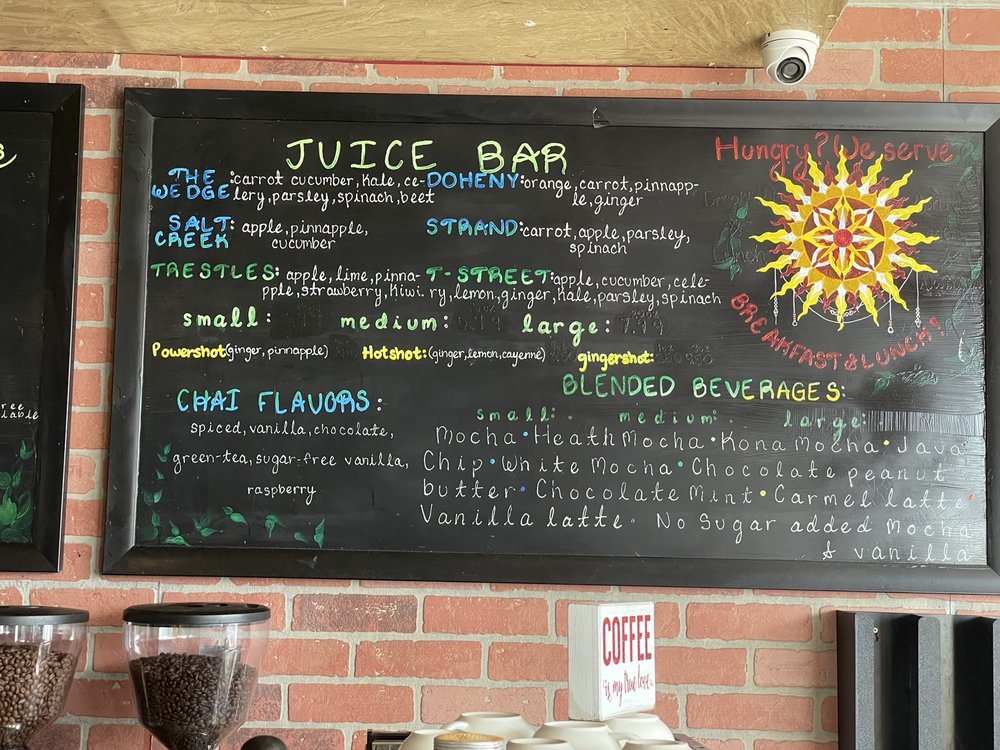 JUICE BAR
THE WEDGE: carrot cucumber, Kale, ce-
lery, parsley, spinach, beet
DOHENY: orange, carrot, pinnapp-
le, ginger
SALT CREEK: apple, pinnapple,
cucumber
STRAND: carrot, apple, parsley,
spinach
TRESTLES: apple, lime, pinna-
pple, strawberry, Kiwi.
T-STREET: apple, cucumber, cele-
ry, lemon, ginger, Kale, parsley, spinach
small: medium: large:
Powershot (ginger, pinnapple) Hotshot: (ginger, lemon, cayenne) gingershot:
Hungry? We serve
BREAKFAST & LUNCH!
CHAI FLAVORS:
spiced, vanilla, chocolate,
green-tea, sugar-free vanilla,
raspberry
BLENDED BEVERAGES:
small: medium: large:
Mocha • Heath Mocha • Kona Mocha • Java
Chip • White Mocha • Chocolate peanut
butter • Chocolate Mint • Carmel latte
Vanilla latte • No Sugar added Mocha
& vanilla
COFFEE
is my true love